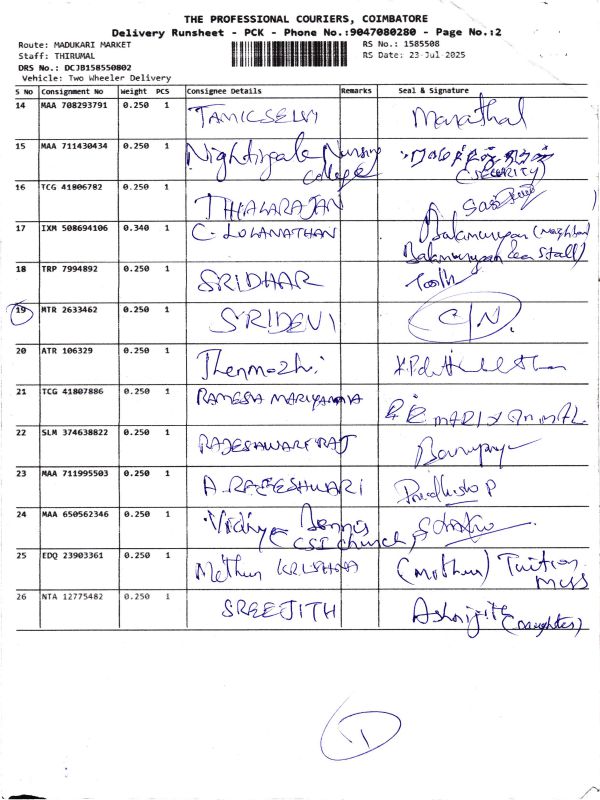 THE PROFESSIONAL COURIERS, COIMBATORE
Delivery Runsheet - PCK - Phone No.:9047080280 - Page No.:2
Route: MADUKARI MARKET RS No.: 1585508
Staff: THIRUMAL RS Date: 23-Jul-2025
DRS No.: DCJB158550802
Vehicle: Two Wheeler Delivery
S No Consignment No Weight PCS Consignee Details Remarks Seal & Signature
14 MAA 708293791 0.250 1 TAMILSELVI Marathal
15 MAA 711430434 0.250 1 Nightingale Nursing
College (SECURITY)
16 TCG 41806782 0.250 1 THIALARAJAN
17 IXM 508694106 0.340 1 C. LOGANATHAN Balamurugan
Balamurugan Tea Stall)
18 TRP 7994892 0.250 1 SRIDHAR
19 MTR 2633462 0.250 1 SRIDEVI C/N
20 ATR 106329 0.250 1 Thenmozhi
21 TCG 41807886 0.250 1 RAMESH MARIYAMMA
22 SLM 374638822 0.250 1 RAJESHWARI RAJ
23 MAA 711995503 0.250 1 A. RAJESHWARI
24 MAA 650562346 0.250 1 Vidhya Dennis
(CSI church)
25 EDQ 23903361 0.250 1 Methun KRISHNA (mothur) Tuition
miss
26 NTA 12775482 0.250 1 SREEJITH
(Daughter)